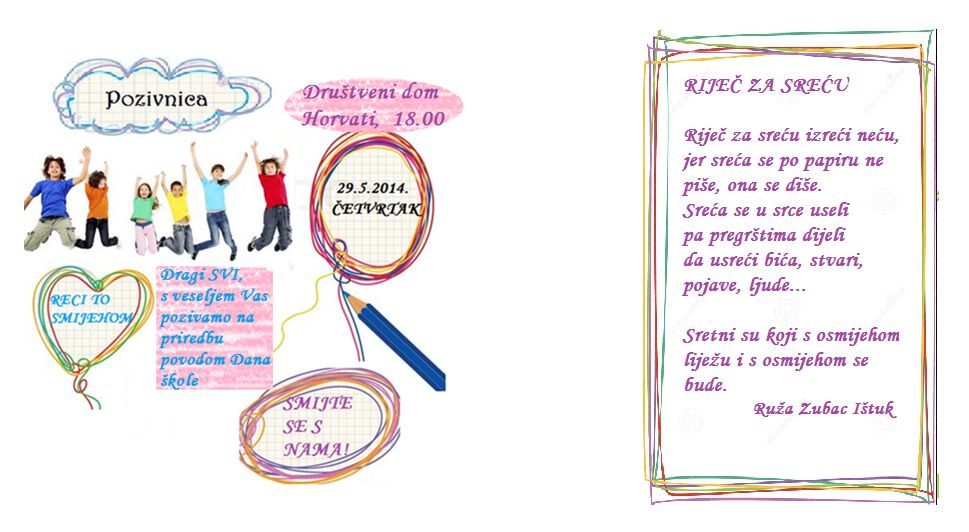 Pozivnica
Društveni dom
Horvati, 18.00
29.5.2014.
ČETVRTAK
RECI TO
SMIJEHOM
Dragi SVI,
s veseljem Vas
pozivamo na
priredbu
povodom Dana
škole
SMIJTE
SE S
NAMA!
RIJEČ ZA SREĆU
Riječ za sreću izreći neću,
jer sreća se po papiru ne
piše, ona se diše.
Sreća se u srce useli
pa pregrštima dijeli
da usreći bića, stvari,
pojave, ljude...
Sretni su koji s osmijehom
liježu i s osmijehom se
bude.
Ruža Zubac Ištuk